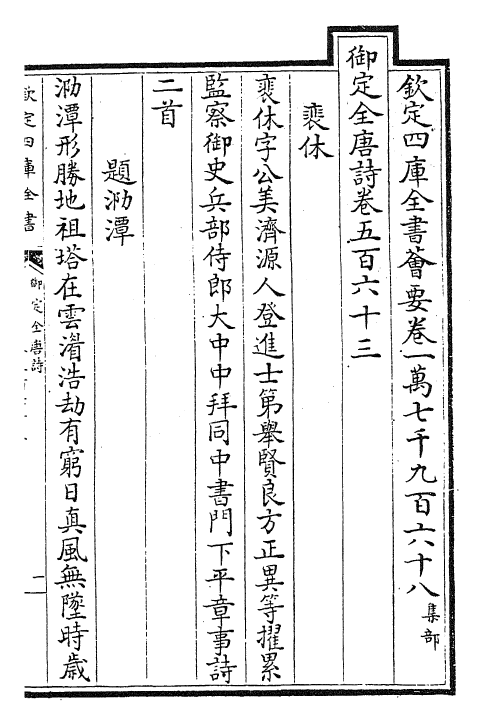 欽定四庫全書薈要卷一萬七千九百六十八 集部
御定全唐詩卷五百六十三
裴休
裴休字公美濟源人登進士第舉賢良方正異等擢累
監察御史兵部侍郎大中中拜同中書門下平章事詩
二首
題泐潭
泐潭形勝地祖塔在雲湄浩劫有窮日真風無墜時歲
欽定四庫全書
御定全唐詩
一